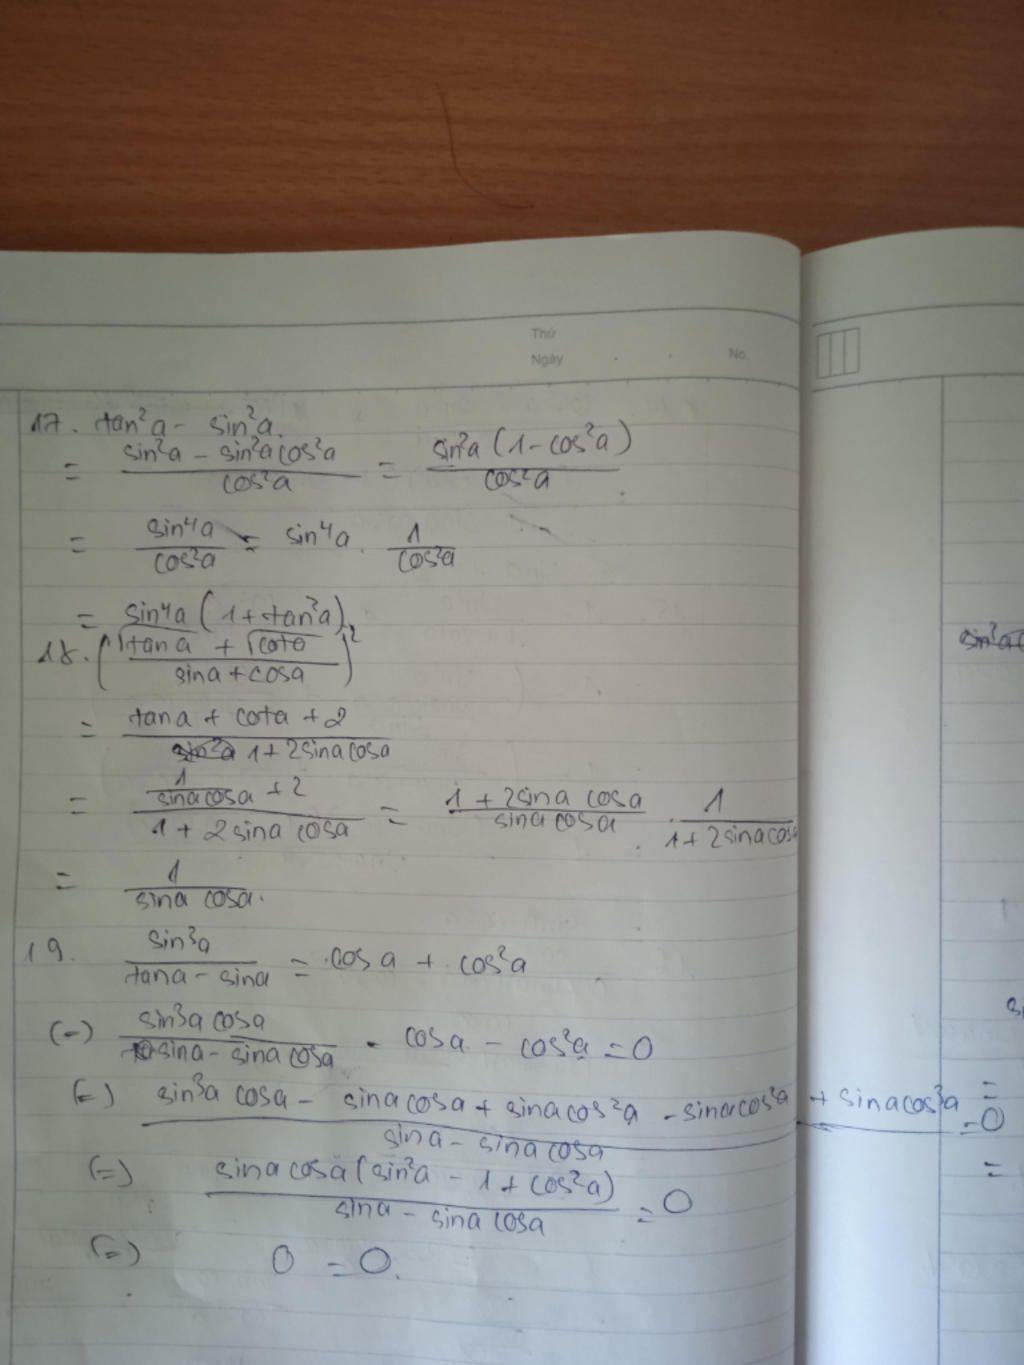 Thứ
Ngày No.
17. tan²a - sin²a.
= (sin²a - sin²a cos²a)/(cos²a) = (sin²a (1 - cos²a))/(cos²a)
= (sin⁴a)/(cos²a) = sin⁴a . 1/(cos²a)
= sin⁴a (1 + tan²a).
18. ((√tan a + √cota)/(sina + cosa))²
= (tan a + cota + 2)/(1 + 2sina cosa)
= (1/(sina cosa) + 2)/(1 + 2 sina cosa) = (1 + 2sina cosa)/(sina cosa) . 1/(1 + 2sina cosa)
= 1/(sina cosa).
19. (sin³a)/(tana - sina) = cos a + cos²a
(=) (sin³a cosa)/(sina - sina cosa) - cosa - cos²a = 0
(=) (sin³a cosa - sina cosa + sina cos²a - sina cos²a + sina cos³a)/(sina - sina cosa) = 0
(=) (sina cosa (sin²a - 1 + cos²a))/(sina - sina cosa) = 0
(=) 0 = 0.